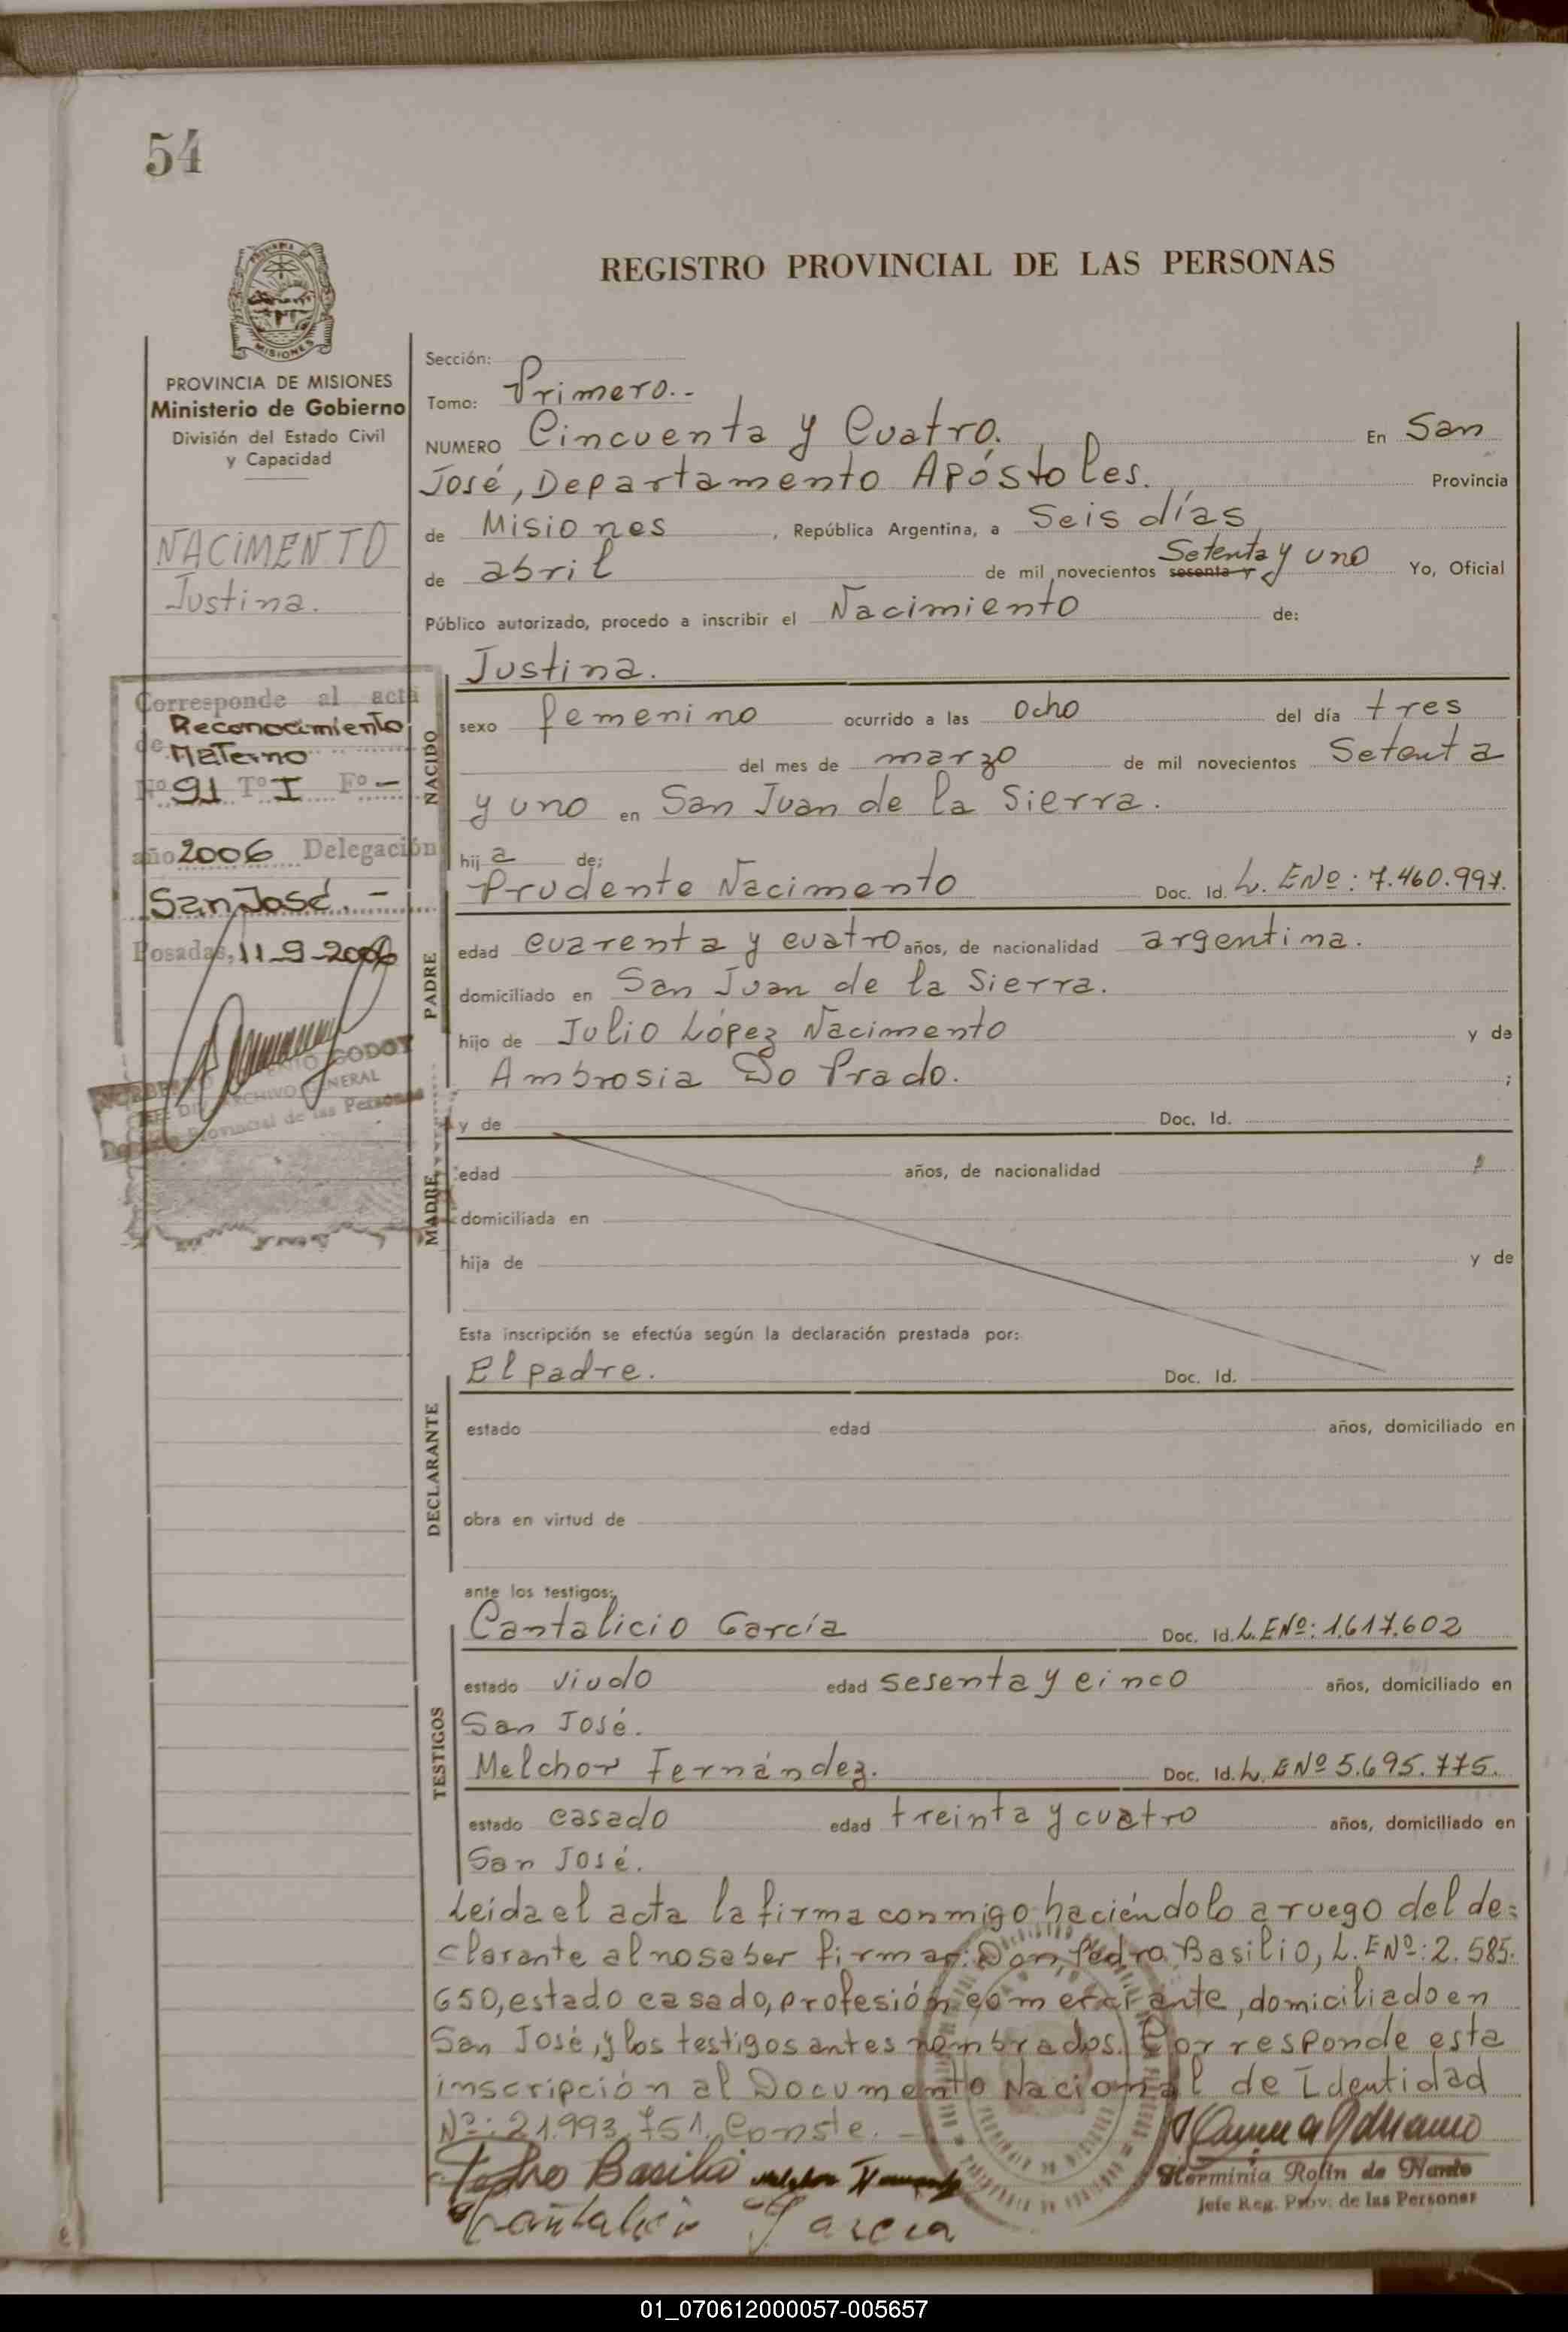 54
REGISTRO PROVINCIAL DE LAS PERSONAS
MISIONES
PROVINCIA DE MISIONES
Ministerio de Gobierno
División del Estado Civil
y Capacidad
NACIMENTO
Justina.
Corresponde al acta
de Reconocimiento
Materno
Nº 91 Tº I Fº -
año 2006 Delegación
San José. -
Posadas, 11-9-2006
GODOY
ARCHIVO GENERAL
Provincial de las Personas
Sección:
Tomo: Primero.-
NUMERO Cincuenta y Cuatro. En San
José, Departamento Apóstoles. Provincia
de Misiones, República Argentina, a Seis días
de abril de mil novecientos sesenta y Setenta y uno Yo, Oficial
Público autorizado, procedo a inscribir el Nacimiento de:
Justina.
NACIDO
sexo femenino ocurrido a las ocho del día tres
del mes de marzo de mil novecientos Setenta
y uno en San Juan de la Sierra.
hij a de:
Prudente Nacimento Doc. Id. L. E Nº: 7.460.997.
PADRE
edad cuarenta y cuatro años, de nacionalidad argentina.
domiciliado en San Juan de la Sierra.
hijo de Julio López Nacimento y de
Ambrosia Do Prado. ;
y de Doc. Id.
MADRE
edad años, de nacionalidad
domiciliada en
hija de y de
Esta inscripción se efectúa según la declaración prestada por:
El padre. Doc. Id.
DECLARANTE
estado edad años, domiciliado en
obra en virtud de
ante los testigos:
Cantalicio García Doc. Id. L. E Nº: 1.617.602
TESTIGOS
estado viudo edad sesenta y cinco años, domiciliado en
San José.
Melchor Fernández. Doc. Id. L. E Nº 5.695.775.
estado casado edad treinta y cuatro años, domiciliado en
San José.
Leída el acta la firma conmigo haciéndolo a ruego del de=
clarante al no saber firmar: Don Pedro Basilio, L. E Nº: 2.585.
650, estado casado, profesión comerciante, domiciliado en
San José, y los testigos antes nombrados. Corresponde esta
inscripción al Documento Nacional de Identidad
Nº: 21.993.751. Conste. -
Pedro Basilio
Herminia Rolin de Nardo
Jefe Reg. Prov. de las Personas
Cantalicio Garcia
01_070612000057-005657